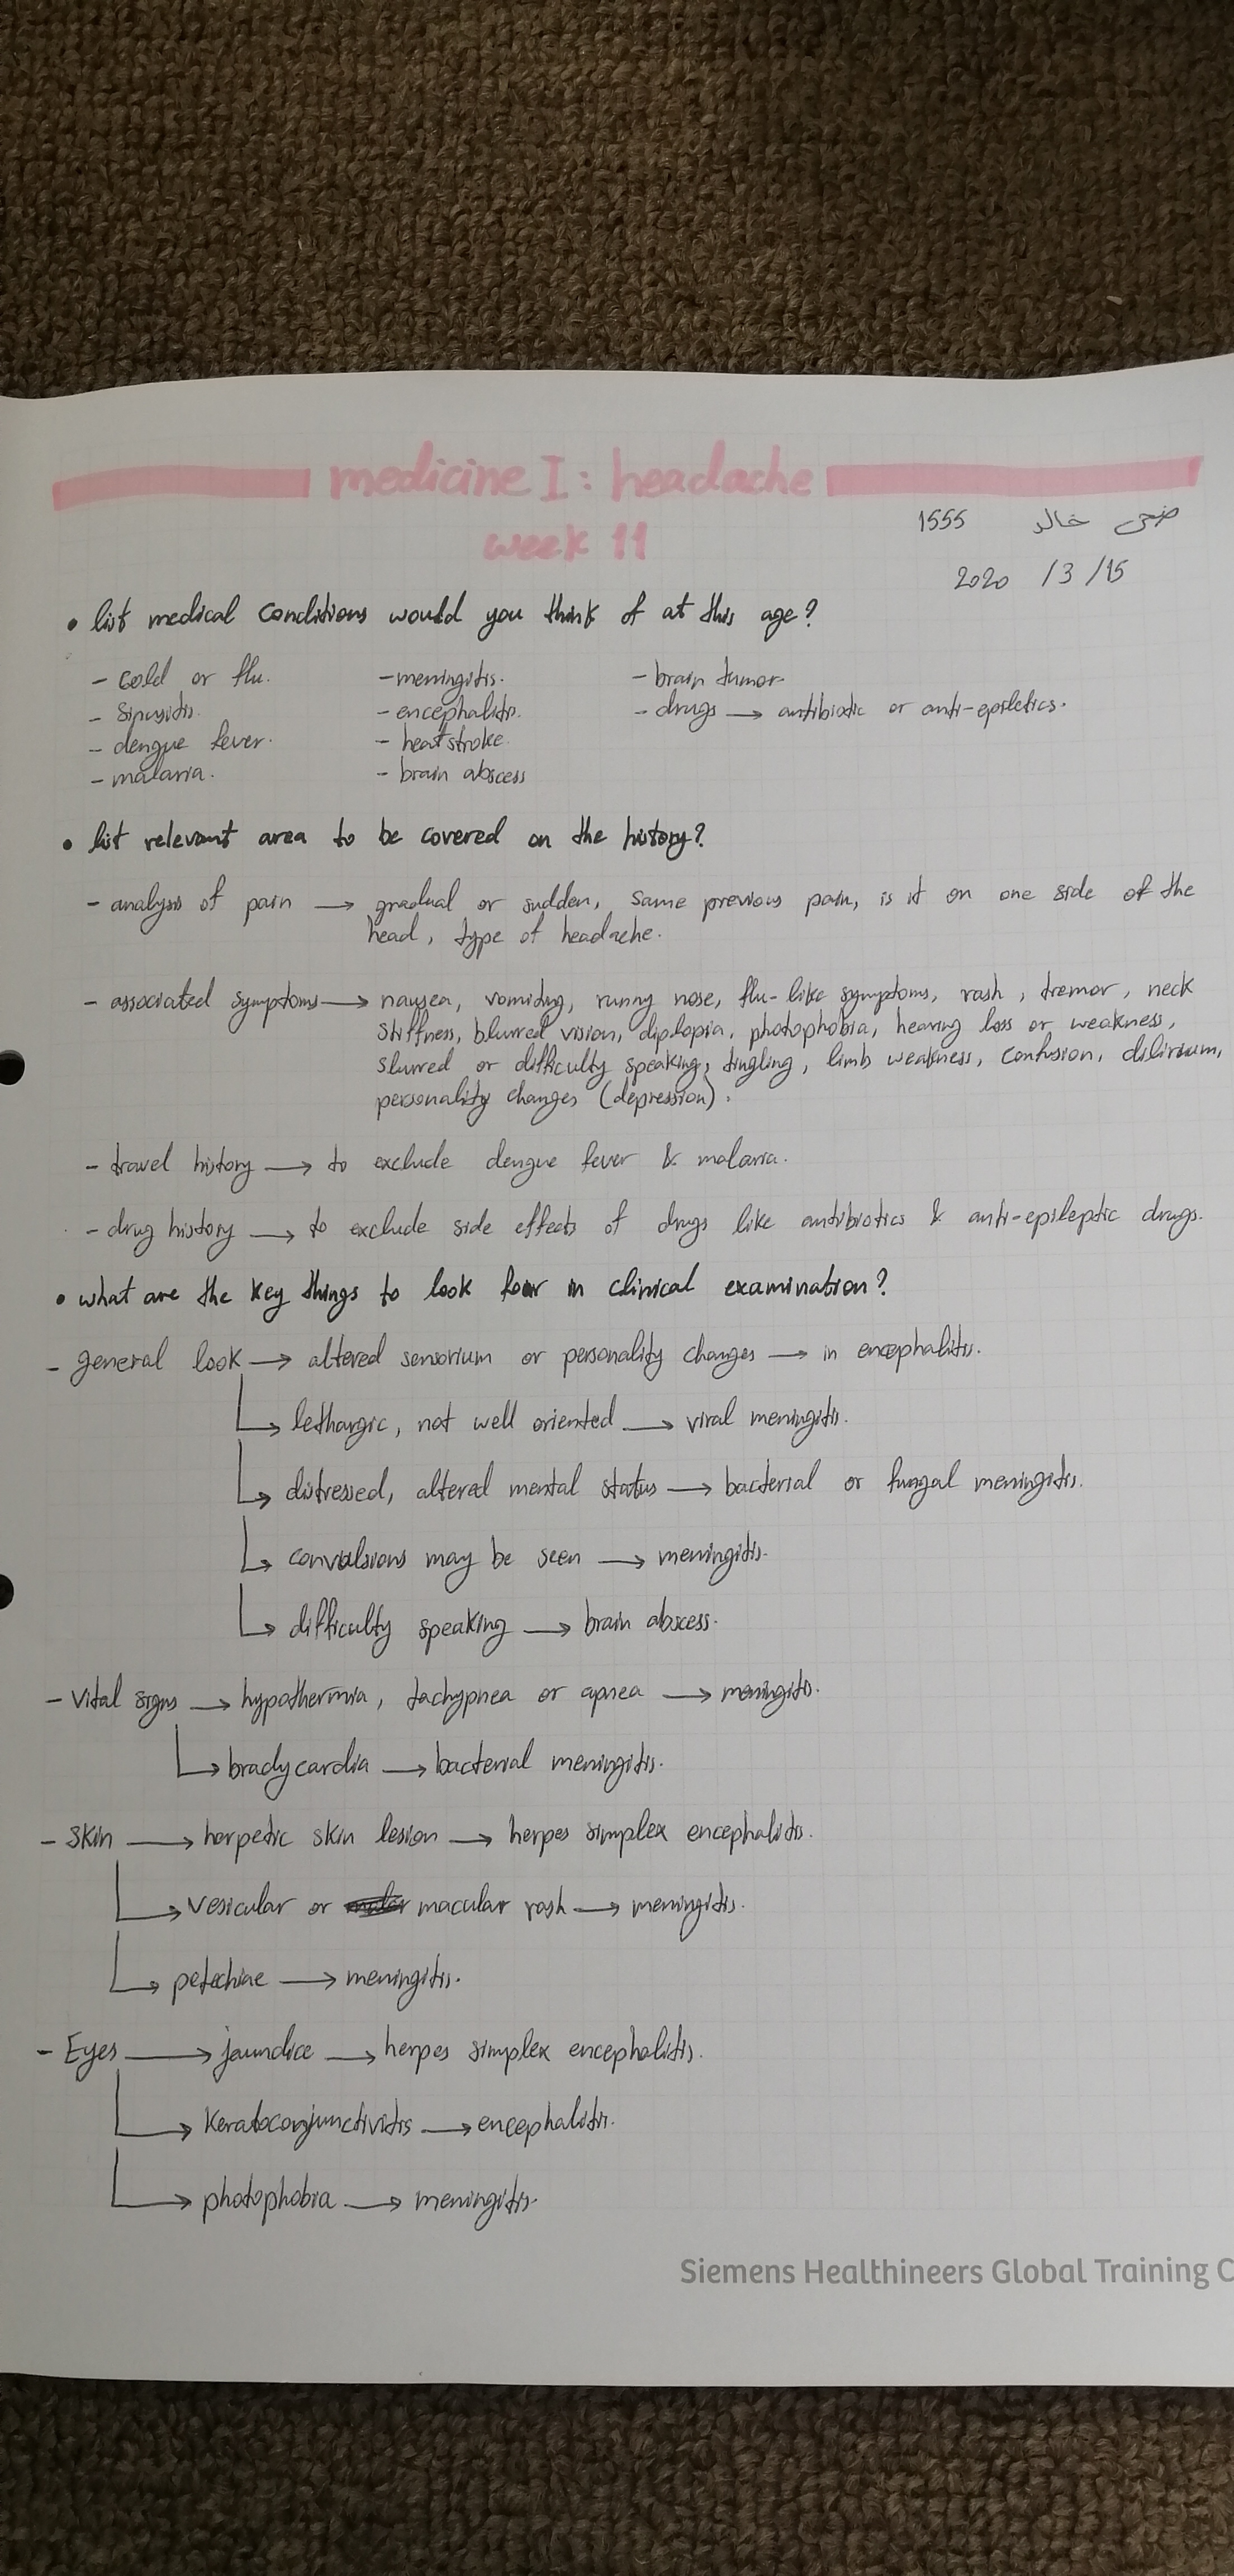 medicine I : headache
week 11
1555 ضحى خالد
2020 /3 /15
• list medical conditions would you think of at this age?
- cold or flu. - meningitis. - brain tumor
- sinusitis. - encephalitis. - drugs → antibiotic or anti-epiletics.
- dengue fever. - heatstroke.
- malaria. - brain abscess
• list relevant area to be covered on the history?
- analysis of pain → gradual or sudden, same previous pain, is it on one side of the
head, type of headache.
- associated symptoms → nausea, vomiting, runny nose, flu-like symptoms, rash, tremor, neck
stiffness, blurred vision, diplopia, photophobia, hearing loss or weakness,
slurred or difficulty speaking, tingling, limb weakness, confusion, dilirium,
personality changes (depression).
- travel history → to exclude dengue fever & malaria.
- drug history → to exclude side effects of drugs like antibiotics & anti-epileptic drugs.
• what are the key things to look for in clinical examination?
- general look → altered sensorium or personality changes → in encephalitis.
↳ lethargic, not well oriented → viral meningitis.
↳ distressed, altered mental status → bacterial or fungal meningitis.
↳ convulsions may be seen → meningitis.
↳ difficulty speaking → brain abscess.
- Vital signs → hypothermia, tachypnea or apnea → meningitis.
↳ bradycardia → bacterial meningitis.
- Skin → herpetic skin lesion → herpes simplex encephalitis.
↳ vesicular or macular rash → meningitis.
↳ petechiae → meningitis.
- Eyes → jaundice → herpes simplex encephalitis.
↳ Keratoconjunctivitis → encephalitis.
↳ photophobia → meningitis.
Siemens Healthineers Global Training C